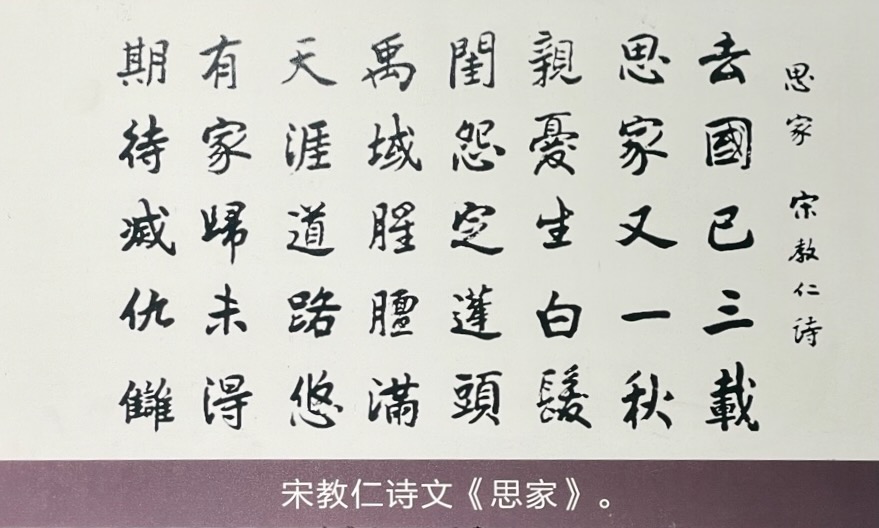 思家 宋教仁诗
去國已三載
思家又一秋
親憂生白髮
閨怨定蓬頭
禹域腥膻滿
天涯道路悠
有家歸未得
期待滅仇讎
宋教仁诗文《思家》。